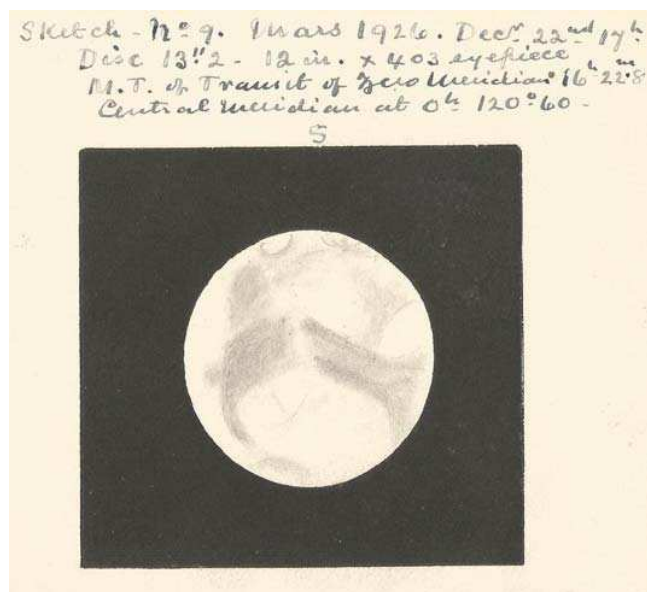 Sketch - No 9. Mars 1926. Decr 22nd 17h
Disc 13."2 - 12 in. x 403 eyepiece
M.T. of Transit of Zero Meridian 16h 22.m8
Central Meridian at 0h 120°.60 -
S